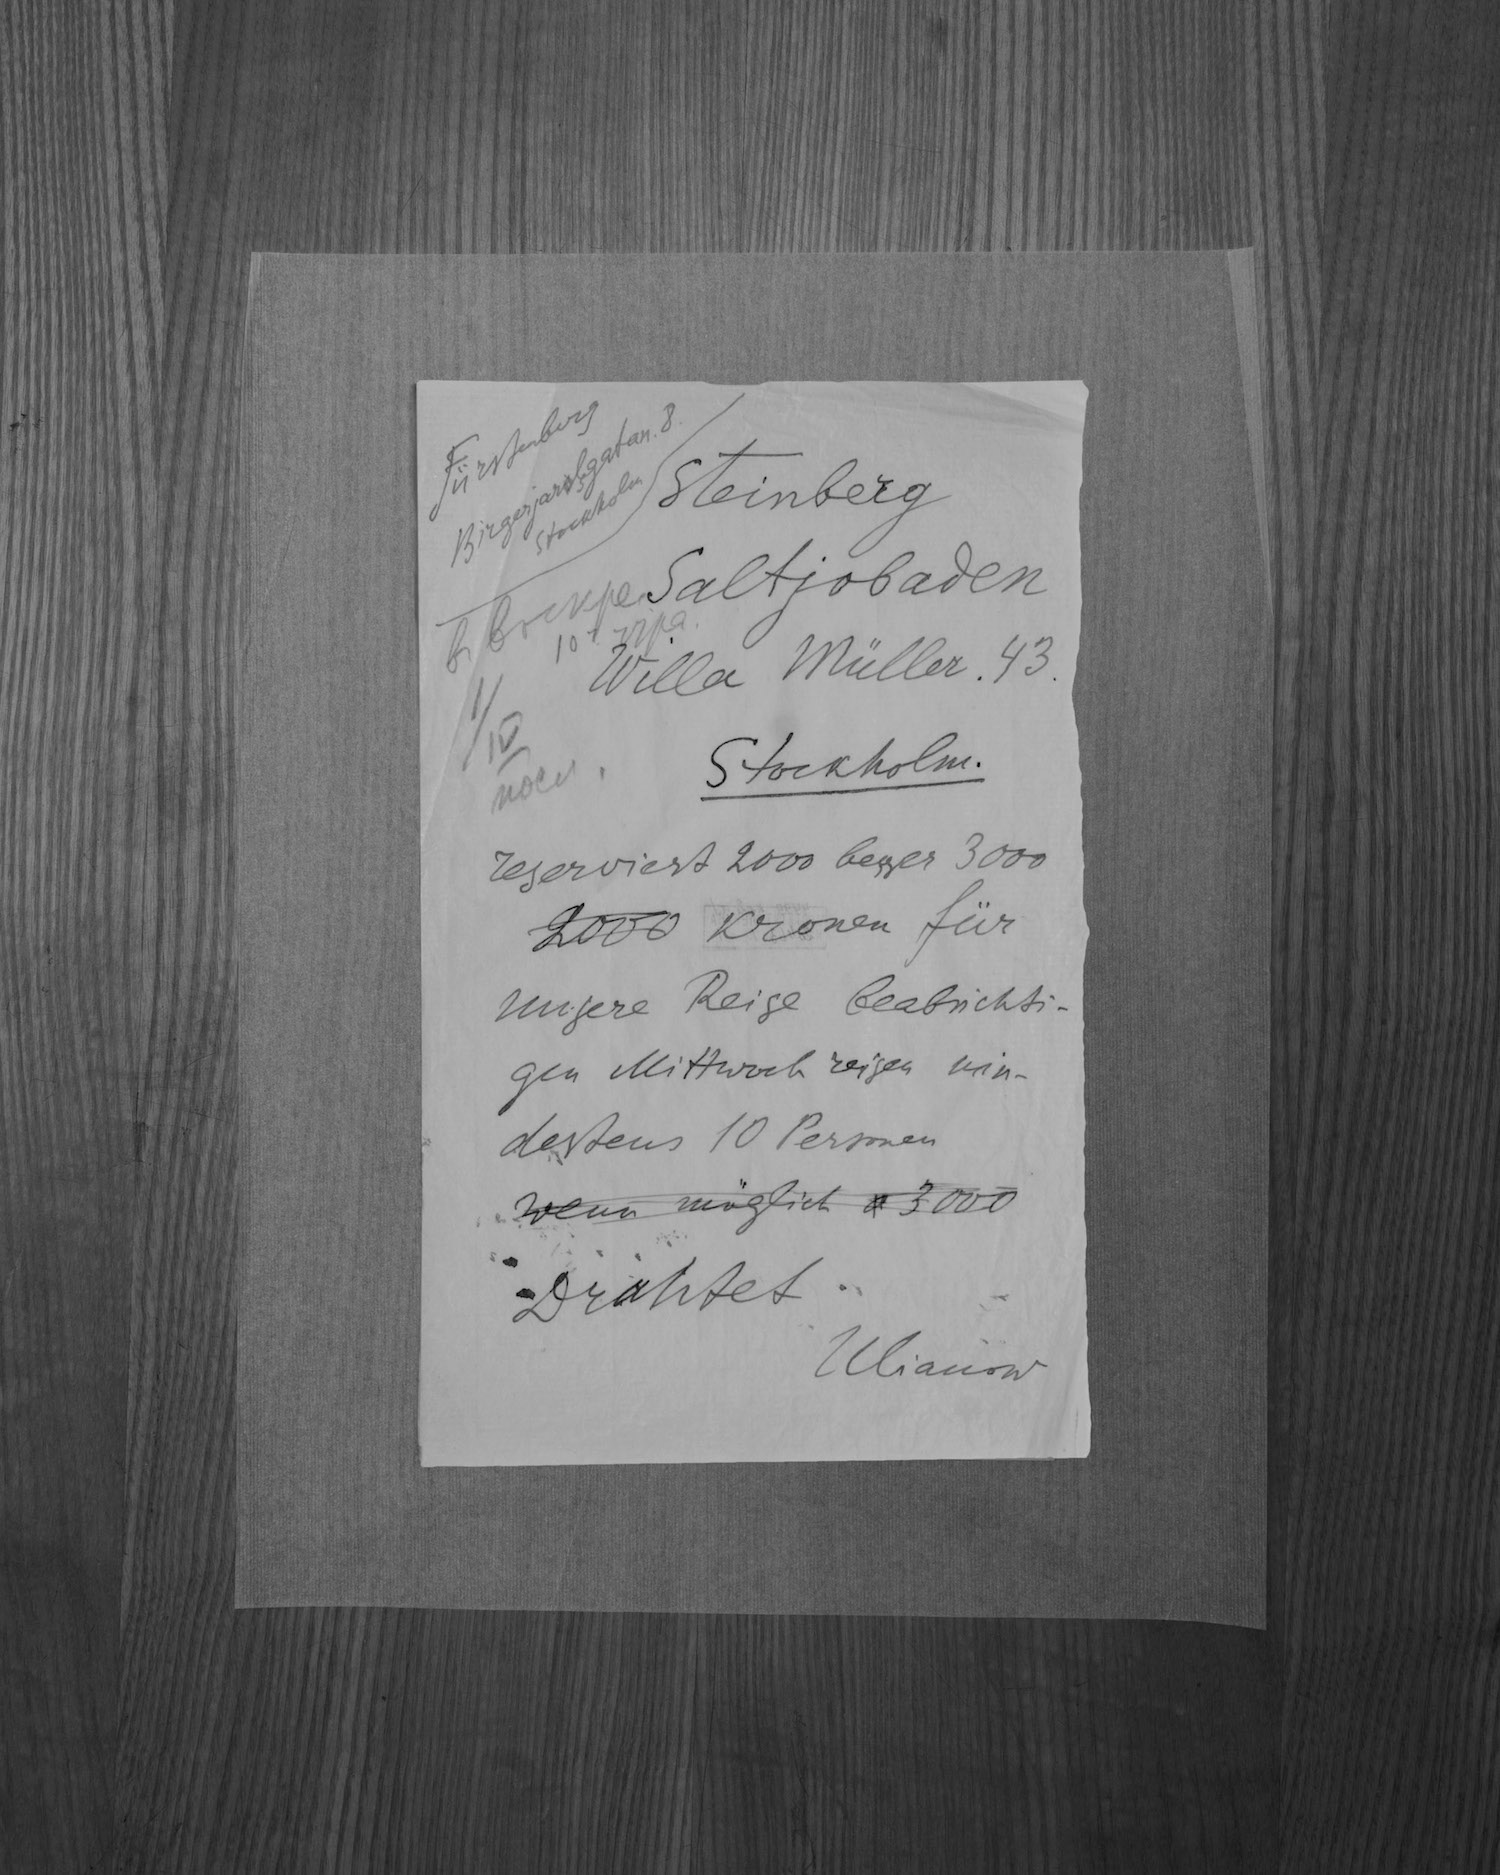 Fürstenberg
Birgerjarlsgatan. 8.
Stockholm
Steinberg
Saltjobaden
Willa Müller. 43.
Stockholm.
1/IV
reserviert 2000 besser 3000
2000 Kronen für
unsere Reise beabsichti-
gen Mittwoch reisen min-
destens 10 Personen
wenn möglich 3000
Drahtet
Ulianow